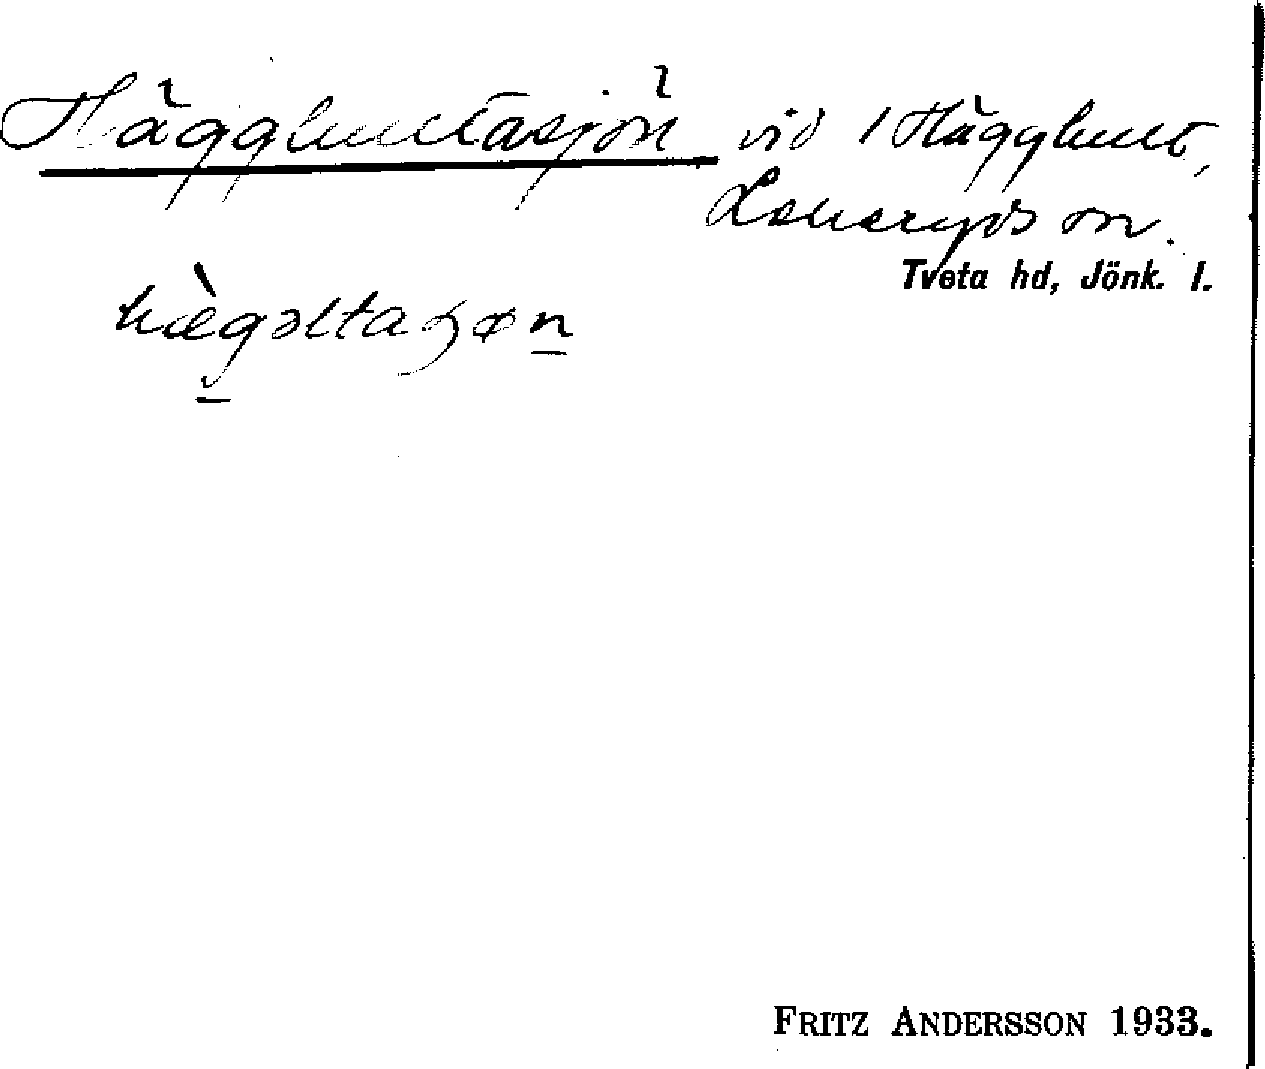 Hägghultasjön vid 1 Hägghult,
Lekeryds sn.
Tveta hd, Jönk. l.
hæ̀gəltaʃøn
FRITZ ANDERSSON 1933.